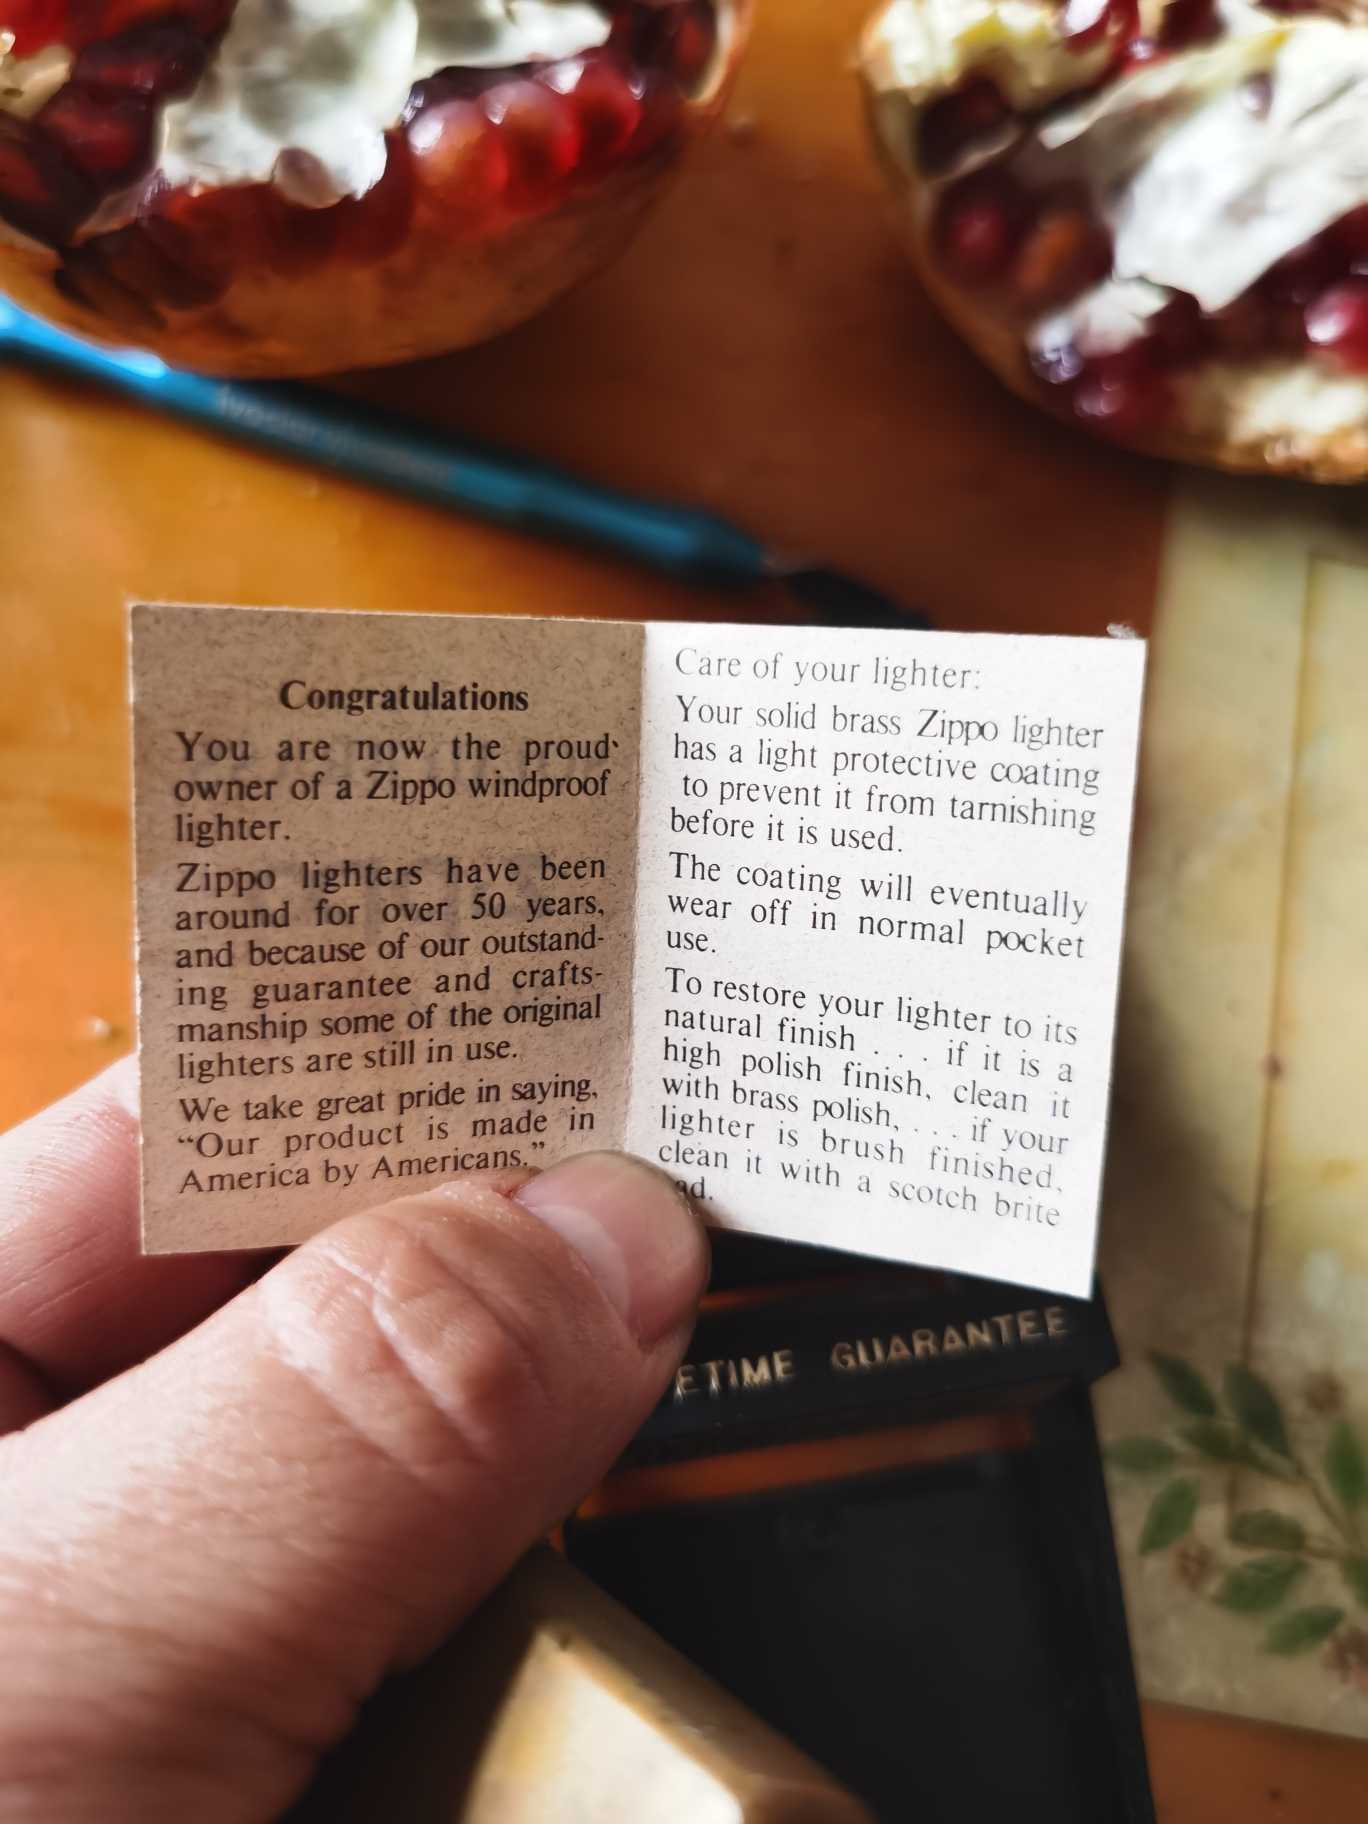 Congratulations
You are now the proud
owner of a Zippo windproof
lighter.
Zippo lighters have been
around for over 50 years,
and because of our outstand-
ing guarantee and crafts-
manship some of the original
lighters are still in use.
We take great pride in saying,
“Our product is made in
America by Americans.”
Care of your lighter:
Your solid brass Zippo lighter
has a light protective coating
to prevent it from tarnishing
before it is used.
The coating will eventually
wear off in normal pocket
use.
To restore your lighter to its
natural finish . . . if it is a
high polish finish, clean it
with brass polish, . . . if your
lighter is brush finished,
clean it with a scotch brite
ad.
ETIME GUARANTEE